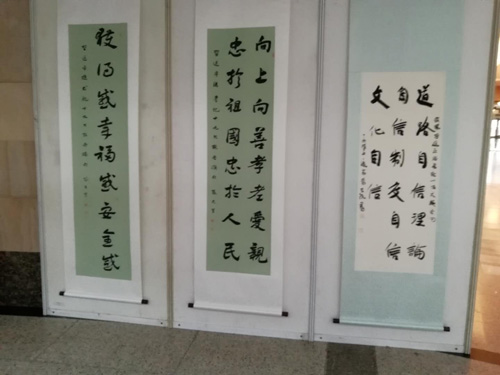 道路自信理論
自信制度自信
文化自信
向上向善孝老愛親
忠於祖國忠於人民
獲得感幸福感安全感